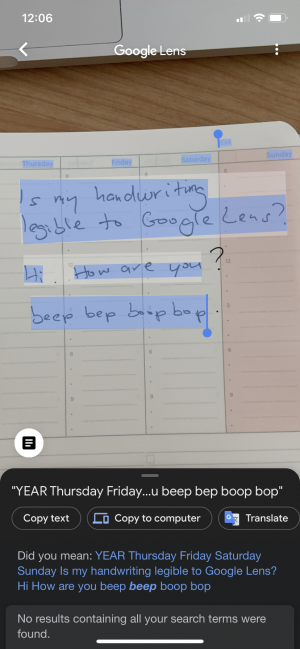 12:06
Google Lens
YEAR
Thursday Friday Saturday Sunday
Is my handwriting
legible to Google Lens?
Hi. How are you?
beep bep boop bop.
"YEAR Thursday Friday...u beep bep boop bop"
Copy text Copy to computer Translate
Did you mean: YEAR Thursday Friday Saturday
Sunday Is my handwriting legible to Google Lens?
Hi How are you beep beep boop bop
No results containing all your search terms were
found.